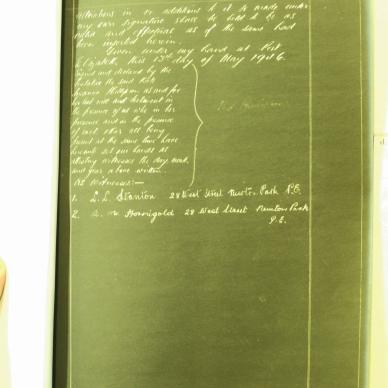 alterations in or additions to it so made under
my own signature shall be held to be as
valid and effectual as if the same had
been inserted herein.
Given under my hand at Port
Elizabeth this 13th day of May 1946.
Signed and declared by the
Testatrix the said
as and for
her last will and testament in
the presence of us who in her
presence and in the presence
of each other all being
present at the same time have
hereunto set our hands as
attesting witnesses the day, month,
and year above written.
As Witnesses:—
1. L. L. Stanton 28 West Street Newton Park P.E.
2. 28 West Street Newton Park
P.E.